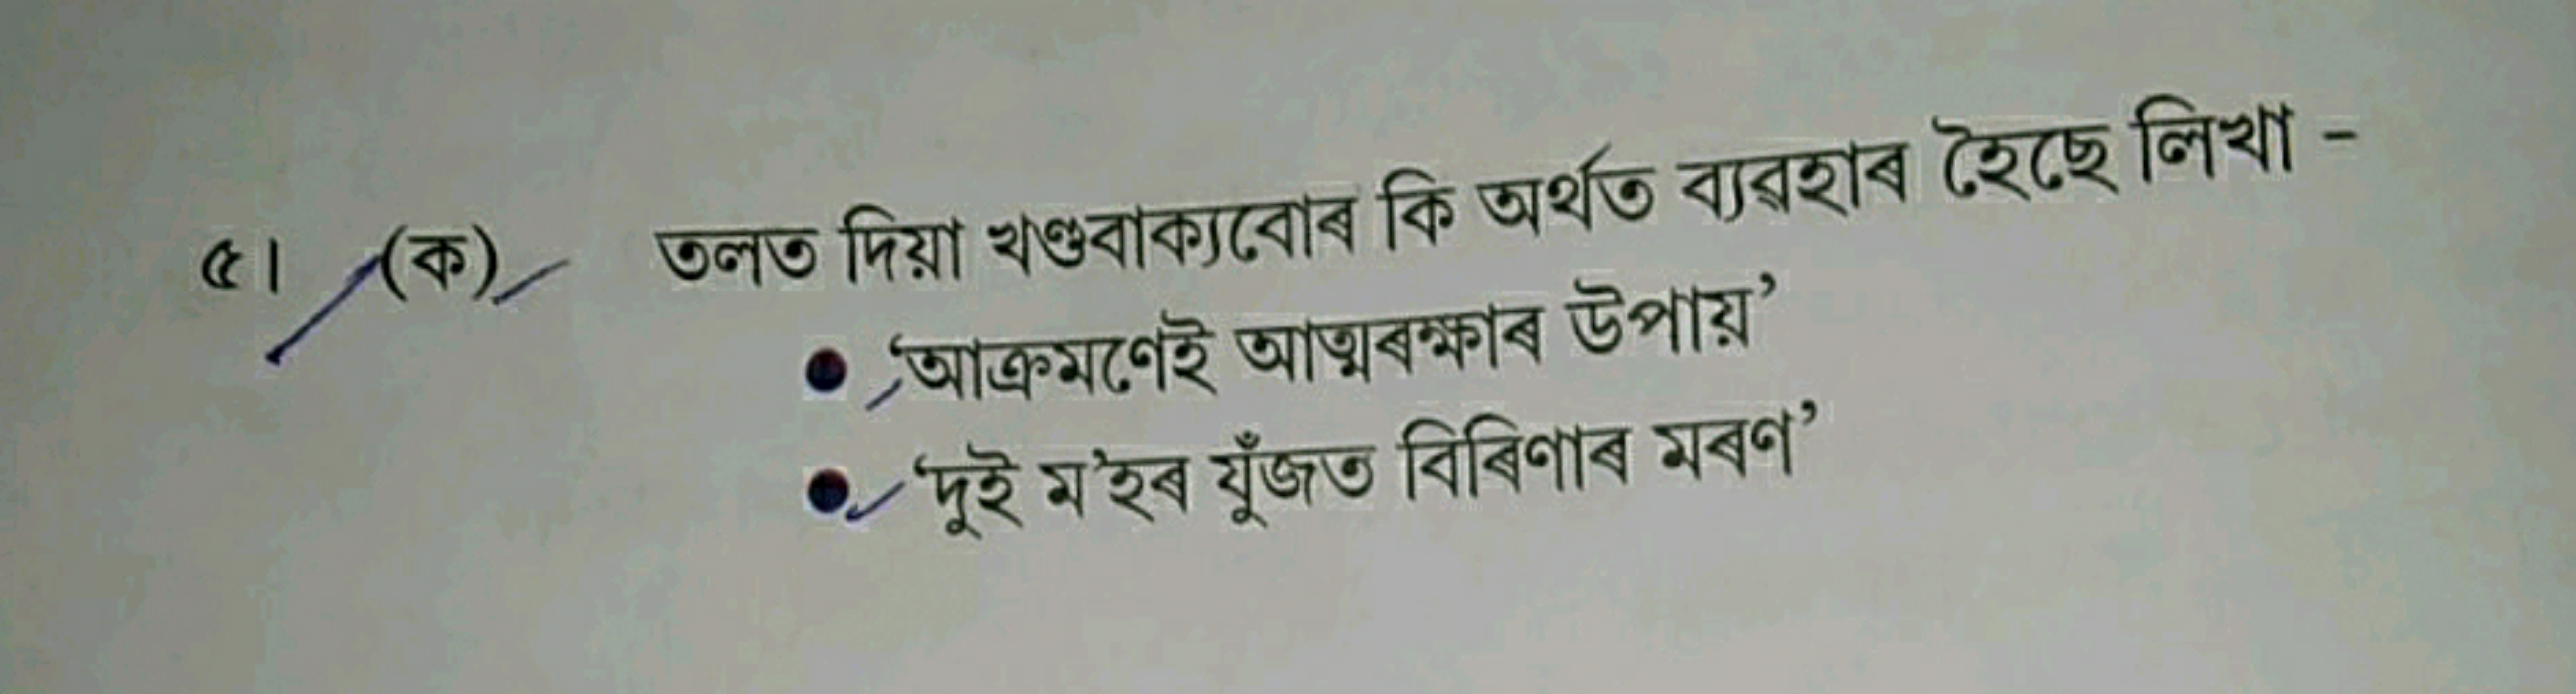 ৫। (ক) তলত দিয়া খণ্ডবাক্যবোৰ কি অৰ্থত ব্যৱহাৰ হৈছে লিখা -
● ‘আক্ৰমণেই আত্মৰক্ষাৰ উপায়’
● ‘দুই ম'হৰ যুঁজত বিৰিণাৰ মৰণ’